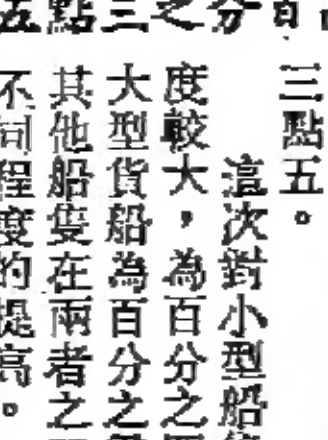 百分之三點五
三點五。
這次對小型船
度較大，為百分之
大型貨船為百分之
其他船隻在兩者之
不同程度的提高。